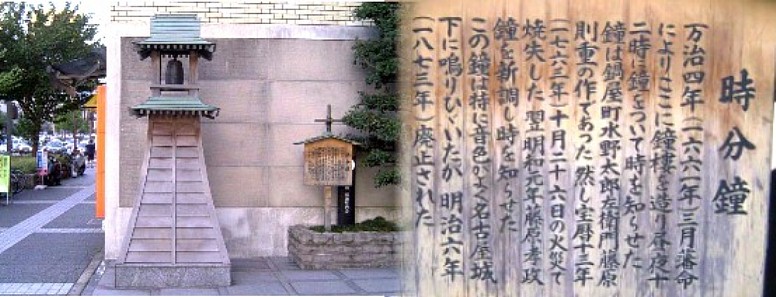 時分鐘
万治四年(一六六一年)三月藩命
によりここに鐘楼を造り昼夜十
二時に鐘をついて時を知らせた
鐘は鍋屋町水野太郎左衛門藤原
則重の作であった然し宝暦十三年
(一七六三年)十月二十六日の火災で
焼失した翌明和元年藤原孝政
鐘を新調し時を知らせた
この鐘は特に音色がよく名古屋城
下に鳴りひゞいたが明治六年
(一八七三年)廃止された